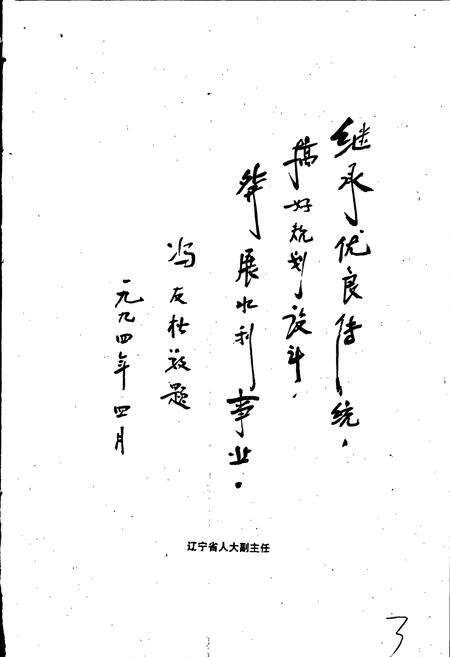 继承优良传统，
搞好规划设计，
发展水利事业。
冯友松敬题
一九九四年四月
辽宁省人大副主任
3